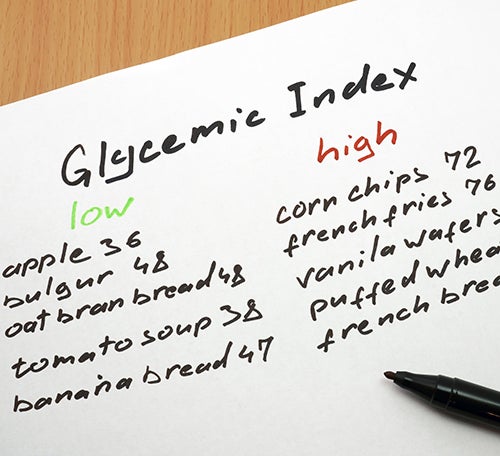 Glycemic Index
low
apple 36
bulgur 48
oat bran bread 48
tomato soup 38
banana bread 47
high
corn chips 72
french fries 76
vanila wafers
puffed whea
french brea